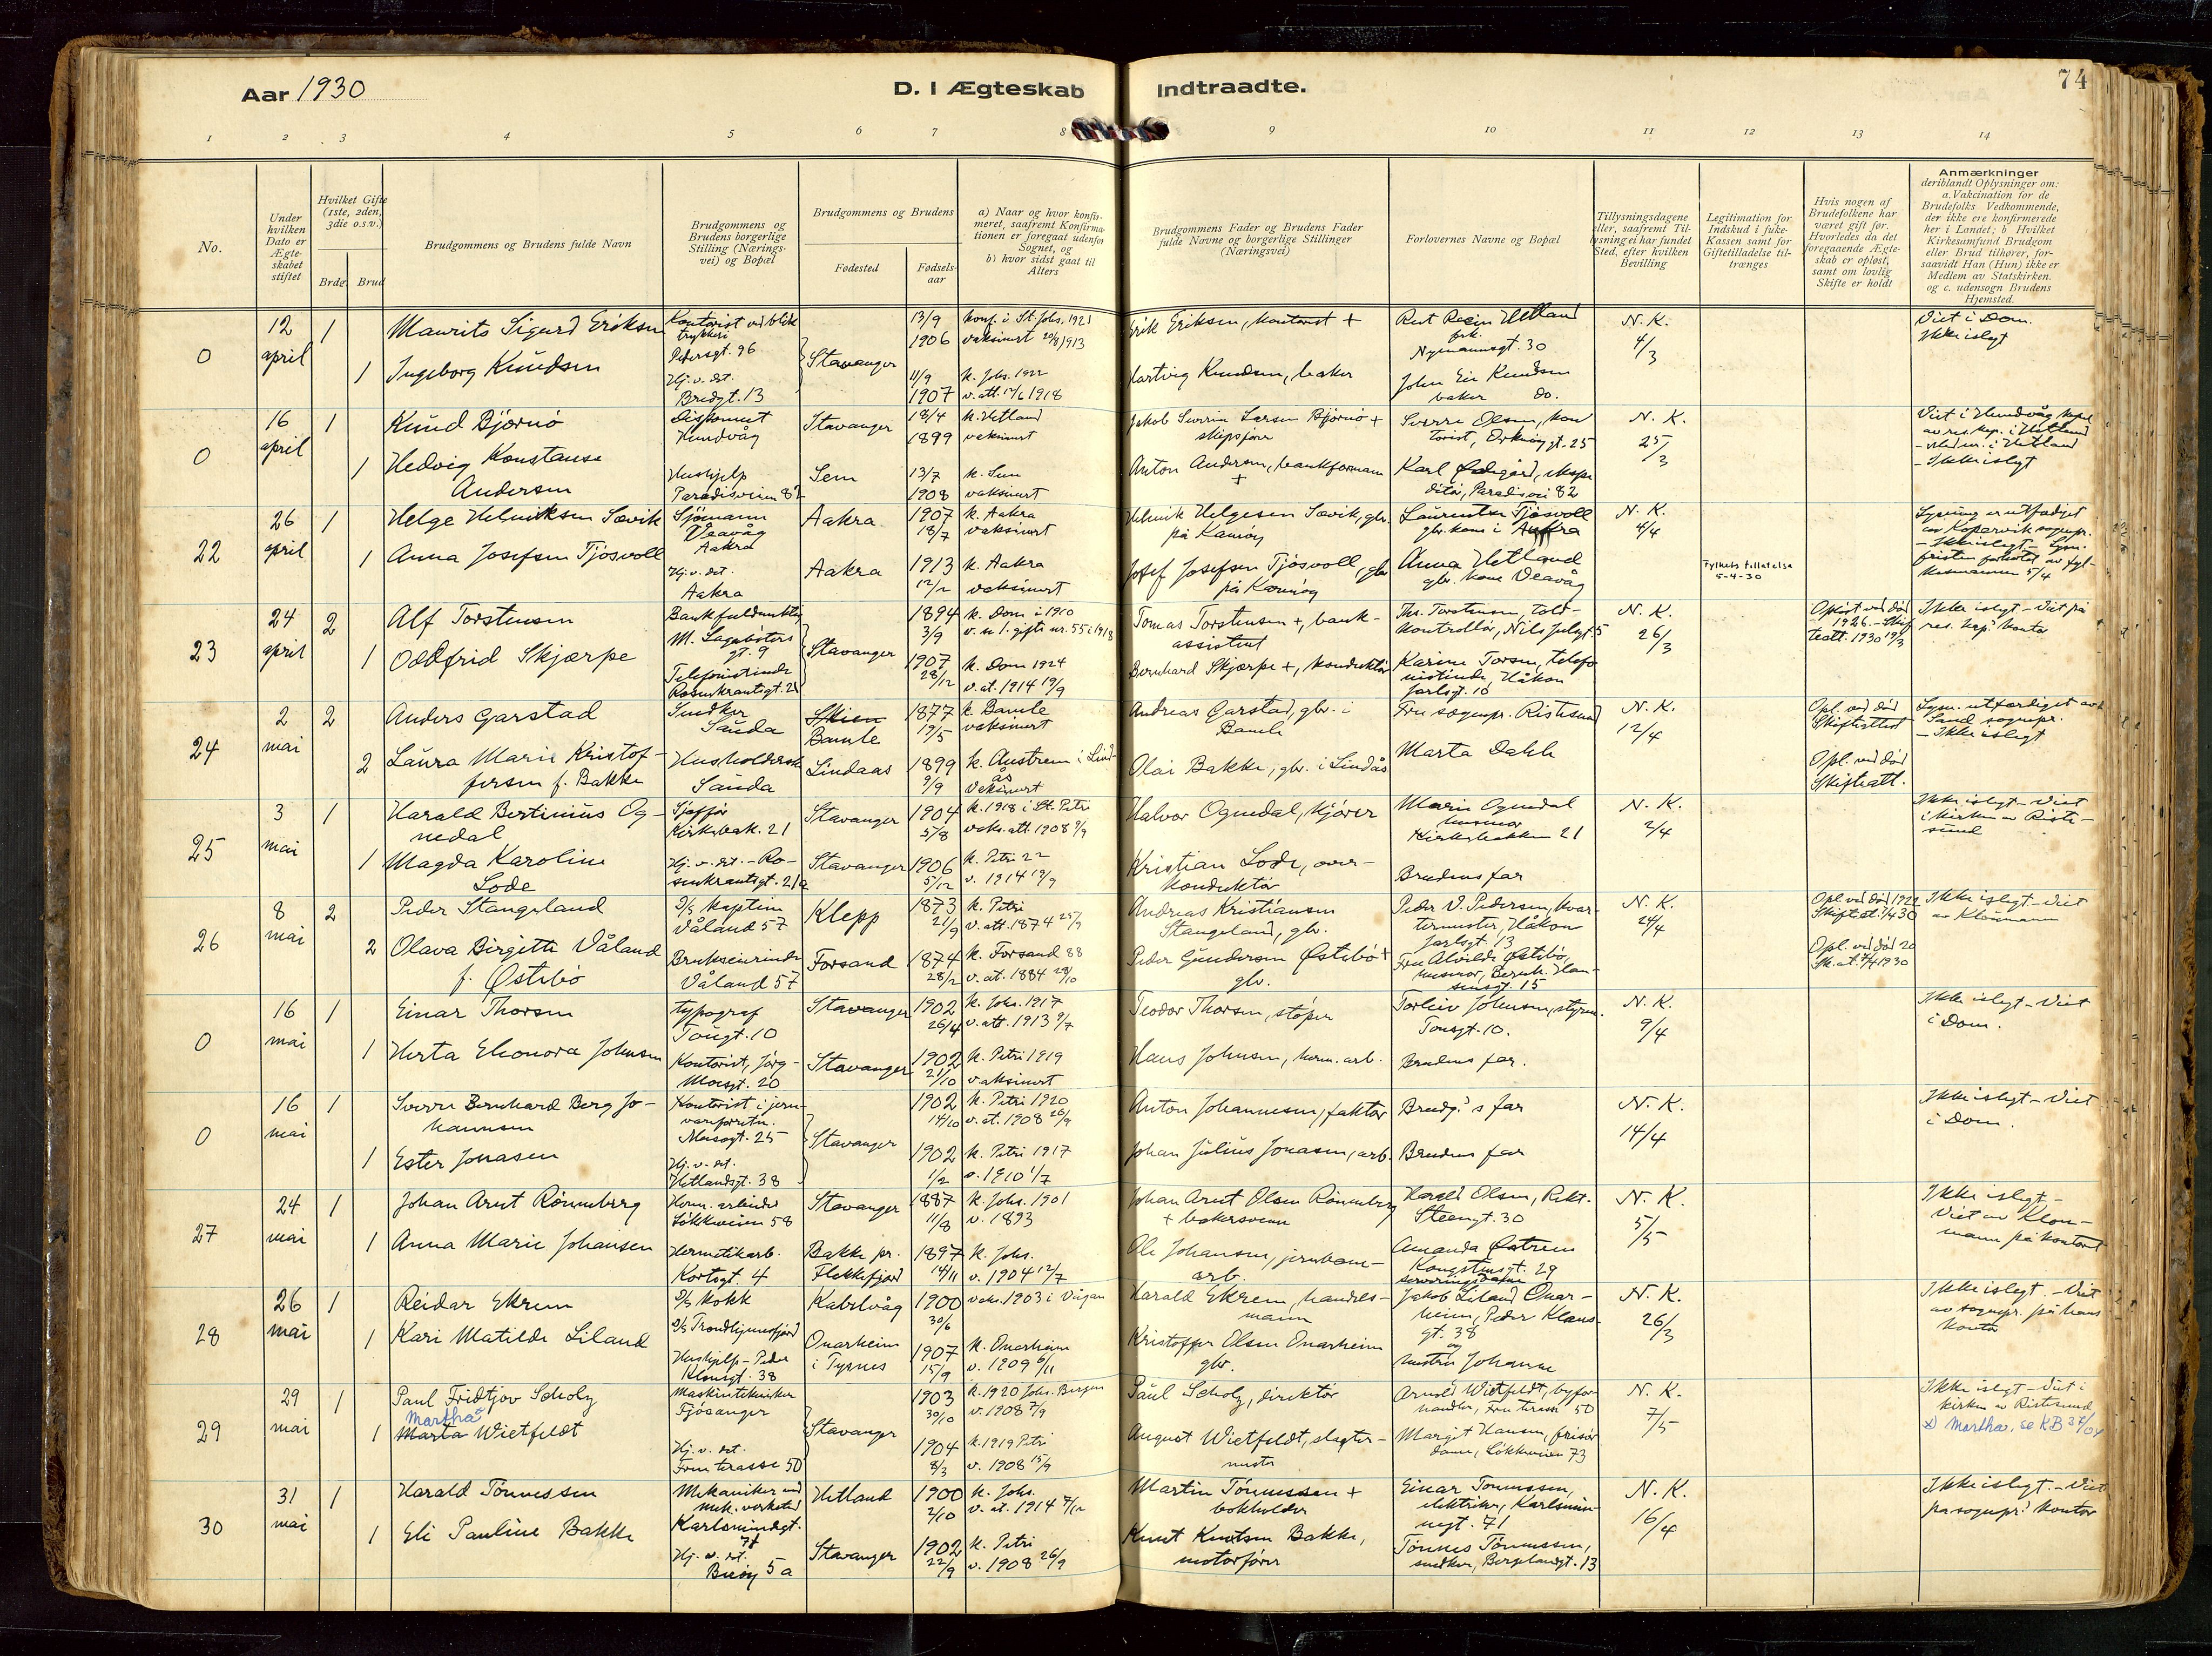 Aar 1930
D. I Ægteskab Indtraadte.
74
1 2 3 4 5 6 7 8 9 10 11 12 13 14
No.
Under hvilken Dato er Ægteskabet stiftet
Hvilket Gifte (1ste, 2den, 3die o.s.v.)
Brdg. Brud
Brudgommens og Brudens fulde Navn
Brudgommens og Brudens borgerlige Stilling (Næringsvei) og Bopæl
Brudgommens og Brudens
Fødested
Fødselsaar
a) Naar og hvor konfirmeret, saafremt Konfirmationen er foregaat udenfor Sognet, og
b) hvor sidst gaat til Alters
Brudgommens Fader og Brudens Fader fulde Navne og borgerlige Stillinger (Næringsvei)
Forlovernes Navne og Bopæl
Tillysningsdagene eller, saafremt Tillysning ei har fundet Sted, efter hvilken Bevilling
Legitimation for Indskud i fuke-Kassen samt for Giftetilladelse tiltrænges
Hvis nogen af Brudefolkene har været gift før. Hvorledes da det foregaaende Ægteskab er opløst, samt om lovlig Skifte er holdt
Anmærkninger
deriblandt Oplysninger om: a. Vakcination for de Brudefolks Vedkommende, der ikke ere konfirmerede her i Landet; b Hvilket Kirkesamfund Brudgom eller Brud tilhører, forsaavidt Han (Hun) ikke er Medlem av Statskirken. og c. udensogn Brudens Hjemsted.
0
12 april
1
Maurits Sigurd Eriksen
Kontorist ved bliktrykkeri
Pedersgt. 96
Stavanger
13/9 1906
konf. i St. Johs. 1921
vaksinert 20/8 1913
Erik Eriksen, kontorist +
Nymannsgt. 30
N. K.
4/3
Viet i Dom.
Ikke islegt
1
Ingeborg Knudsen
Hj. v. det.
Bredgt. 13
11/9 1907
k. Johs. 1922
Hartvig Knudsen, baker
John Eir Knudsen
baker do.
0
16 april
1
Knud Bjørnø
disponent
Hundvåg
Stavanger
18/4 1899
k. Hetland
vaksinert
Jakob Severin Larsen Bjørnø +
skipsfører
Sverre Olsen, kontorist
N. K.
25/3
Viet i Hundvåg kapel
av res. kap. i Hetland
- Ikke islegt
1
Hedvig Konstanse
Andersen
Hushjelp
Paradisveien 82
Sem
13/7 1908
k. Sem
vaksinert
Anton Andersen, bankformann
+
Paradisvei 82
22
26 april
1
Helge Helmiksen Sævik
Sjømann
Veavåg
Aakra
Aakra
1907 18/7
k. Aakra
vaksinert
Helmik Helgesen Sævik, gbr.
på Karmøy
Laurentse Tjøsvoll
gbr. kone i Aakra
N. K.
4/4
Fylkets tillatelse
5-4-30
Lysning er utfærdiget
av Kopervik sognepr.
- Ikke islegt
1
Anna Josefsen Tjøsvoll
Hj. v. det.
Aakra
Aakra
1913 12/2
k. Aakra
vaksinert
Josef Josefsen Tjøsvoll, gbr
på Karmøy
Anna Hetland
gbr. kone Veavåg
23
24 april
2
Alf Torstensen
Bankfuldmektig
Stavanger
1894 3/9
k. Dom i 1910
Tomas Torstensen +, bankassistent
Ths. Torstensen, toldkontrollør, Nils Juelsgt. 5
N. K.
26/3
Opløst ved død
1926. - Skifteatt. 1930 19/3
Ikke islegt - Viet på
res. kap. kontor
1
Oddfrid Skjærpe
Telefonistinde
Rosenkrantzgt. 21
1907 28/12
k. Dom 1924
v. at. 1914 19/9
Bernhard Skjærpe +, konduktør
Karine Torsen, telefonistinde, Håkon
Jarlsgt. 10
24
2 mai
2
Anders Garstad
Snekker
Sauda
Skien
Bamle
1877 19/5
k. Bamle
vaksinert
Andreas Garstad, gbr. i
Bamle
Fru sognepr. Ristesund
N. K.
12/4
Opl. ved død
Skifteattest
Lysn. utfærdiget av
Sand sognepr.
- Ikke islegt
2
Laura Marie Kristofersen f. Bakke
Husholderske
Sauda
Lindaas
1899 9/9
k. Austrem i Lindås
Vaksinert
Olai Bakke, gbr. i Lindås
Marta Dahle
Opl. ved død
Skifteatt.
25
3 mai
1
Harald Bertinius Ognedal
Sjøffør
Kirkebak. 21
Stavanger
1904 5/8
k. 1918 i St. Petri
vaks. att. 1908 9/9
Halvor Ognedal, kjører
Marie Ognedal
husmor
Kirkebakken 21
N. K.
2/4
Ikke islegt - Viet
i kirken av Ristesund
1
Magda Karoline
Lode
Hj. v. det. - Rosenkrantzgt. 21a
Stavanger
1906 5/12
k. Petri 22
v. 1914 19/9
Kristian Lode, overkonduktør
Brudens far
26
8 mai
2
Peder Stangeland
D/S kaptein
Våland 57
Klepp
1873 21/9
k. Petri
v. att. 1874 25/9
Andreas Kristiansen
Stangeland, gbr.
Peder V. Pedersen, kvartermester, Håkon
Jarlsgt. 13
N. K.
24/4
Opl. ved død 1922
Ikke islegt - Viet
av Klaumann
2
Olava Birgitte Våland
f. Østebø
Brukseierinde
Våland 57
Forsand
1874 28/2
k. Forsand 88
v. at. 1884 28/10
Peder Gundersen Østebø +
gbr.
Fru Alvilde Østebø,
husmor, Bernh. Hansensgt. 15
Opl. ved død 20
Sk. at. 7/4 1930
0
16 mai
1
Einar Thorsen
typograf
Tougt. 10
Stavanger
1902 26/4
k. Johs. 1917
v. att. 1913 9/7
Teodor Thorsen, støper
Torleiv Johnsen, styrm.
Tougt. 10.
N. K.
9/4
Ikke islegt - Viet
i Dom.
1
Herta Eleonora Johnsen
Kontorist, Jørg-
Moesgt. 20
Stavanger
1902 21/10
k. Petri 1919
vaksinert
Hans Johnsen, herm. arb.
Brudens far.
0
16 mai
1
Sverre Bernhard Berg Johannesen
Kontorist i jernvareforretn.
Mosegt. 25
Stavanger
1902 14/10
k. Petri 1920
v. at. 1908 26/9
Anton Johannesen, faktor
Brudg.'s far
N. K.
14/4
Ikke islegt - Viet
i Dom.
1
Ester Jonasen
Hj. v. det.
Hetlandsgt. 38
1902 1/2
k. Petri 1917
v. 1910 1/7
Johan Julius Jonasen, arb.
Brudens far
27
24 mai
1
Johan Arnt Rønneberg
Herm. arbeider
Løkkeveien 58
Stavanger
1887 11/8
k. Johs. 1901
v. 1893
Johan Arnt Olsen Rønneberg
+ bakersvenn
Harald Olsen, Rekt.
Steengt. 30
N. K.
5/5
Ikke islegt -
Viet av Klaumann på kontoret
1
Anna Marie Johansen
Hermetikarb.
Kortsgt. 4
Bakke pr.
Flekkefjord
1897 14/11
k. Johs.
v. 1904 12/7
Ole Johansen, jernbanearb.
Amanda Østrem
Kongstensgt. 29
serveringsdame
28
26 mai
1
Reidar Ekrem
D/S kokk
D/S Trondhjemsfjord
Kabelvåg
1900 30/6
vaks. 1903 i Vågan
Harald Ekrem, handelsmann
Jakob Liland Onarheim, Peder Klowsgt. 38
og
hustru Johanne
N. K.
26/3
Ikke islegt. - Viet
av sognepr. på hans
kontor
1
Kari Matilde Liland
Hushjelp - Peder
Klowsgt. 38
Onarheim
i Tysnes
1907 15/9
k. Onarheim
v. 1909 6/11
Kristoffer Olsen Onarheim
gbr.
29
29 mai
1
Paul Fridtjov Scholz
Maskintekniker
Fjøsanger
Stavanger
1903 30/10
k. 1920 Johs. Bergen
v. 1908 7/9
Paul Scholz, direktør
Arnold Wietfeldt, byforhandler, Fru terasse 50
N. K.
7/5
Ikke islegt - Viet i
kirken av Ristesund
x) Martha, se KB 37/04
1
Martha x
Marta Wietfeldt
Hj. v. det.
Frue terasse 50
1904 8/3
k. 1919 Petri
v. 1908 15/9
August Wietfeldt, slagtermester
Margit Hansen, frisørdame, Løkkeveien 73
30
31 mai
1
Harald Tønnessen
Mekaniker ved
mek. verksted
Karlsmindegt. 71
Hetland
1900 2/10
k. Johs.
v. at. 1914 7/12
Martin Tønnessen +
bokholder
Einar Tønnessen,
elektriker, Karlsmindegt. 71
N. K.
16/4
Ikke islegt. - Viet
på sognepr.' kontor
1
Eli Pauline Bakke
Hj. v. det.
Buøy 5a
Stavanger
1902 22/9
k. Petri
v. 1908 26/9
Knut Knutsen Bakke,
motorfører
Tønnes Tønnessen,
snekker, Bergelandgt. 13